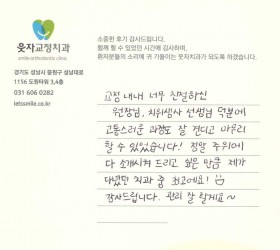 웃자교정치과
smile-orthodontic clinic
경기도 성남시 중원구 성남대로
1156 도원타워 3,4층
031 606 0282
letssmile.co.kr
소중한 후기 감사드립니다.
함께 할 수 있었던 시간에 감사하며,
환자분들의 소리에 귀 기울이는 웃자치과가 되도록 하겠습니다.
교정 내내 너무 친절하신
원장님, 치위생사 선생님 덕분에
고통스러운 과정도 잘 견디고 마무리
할 수 있었습니다! 정말 주위에
다 소개시켜 드리고 싶은 만큼 제가
다녔던 치과 중 최고에요!
감사드립니다. 관리 잘 할게요~